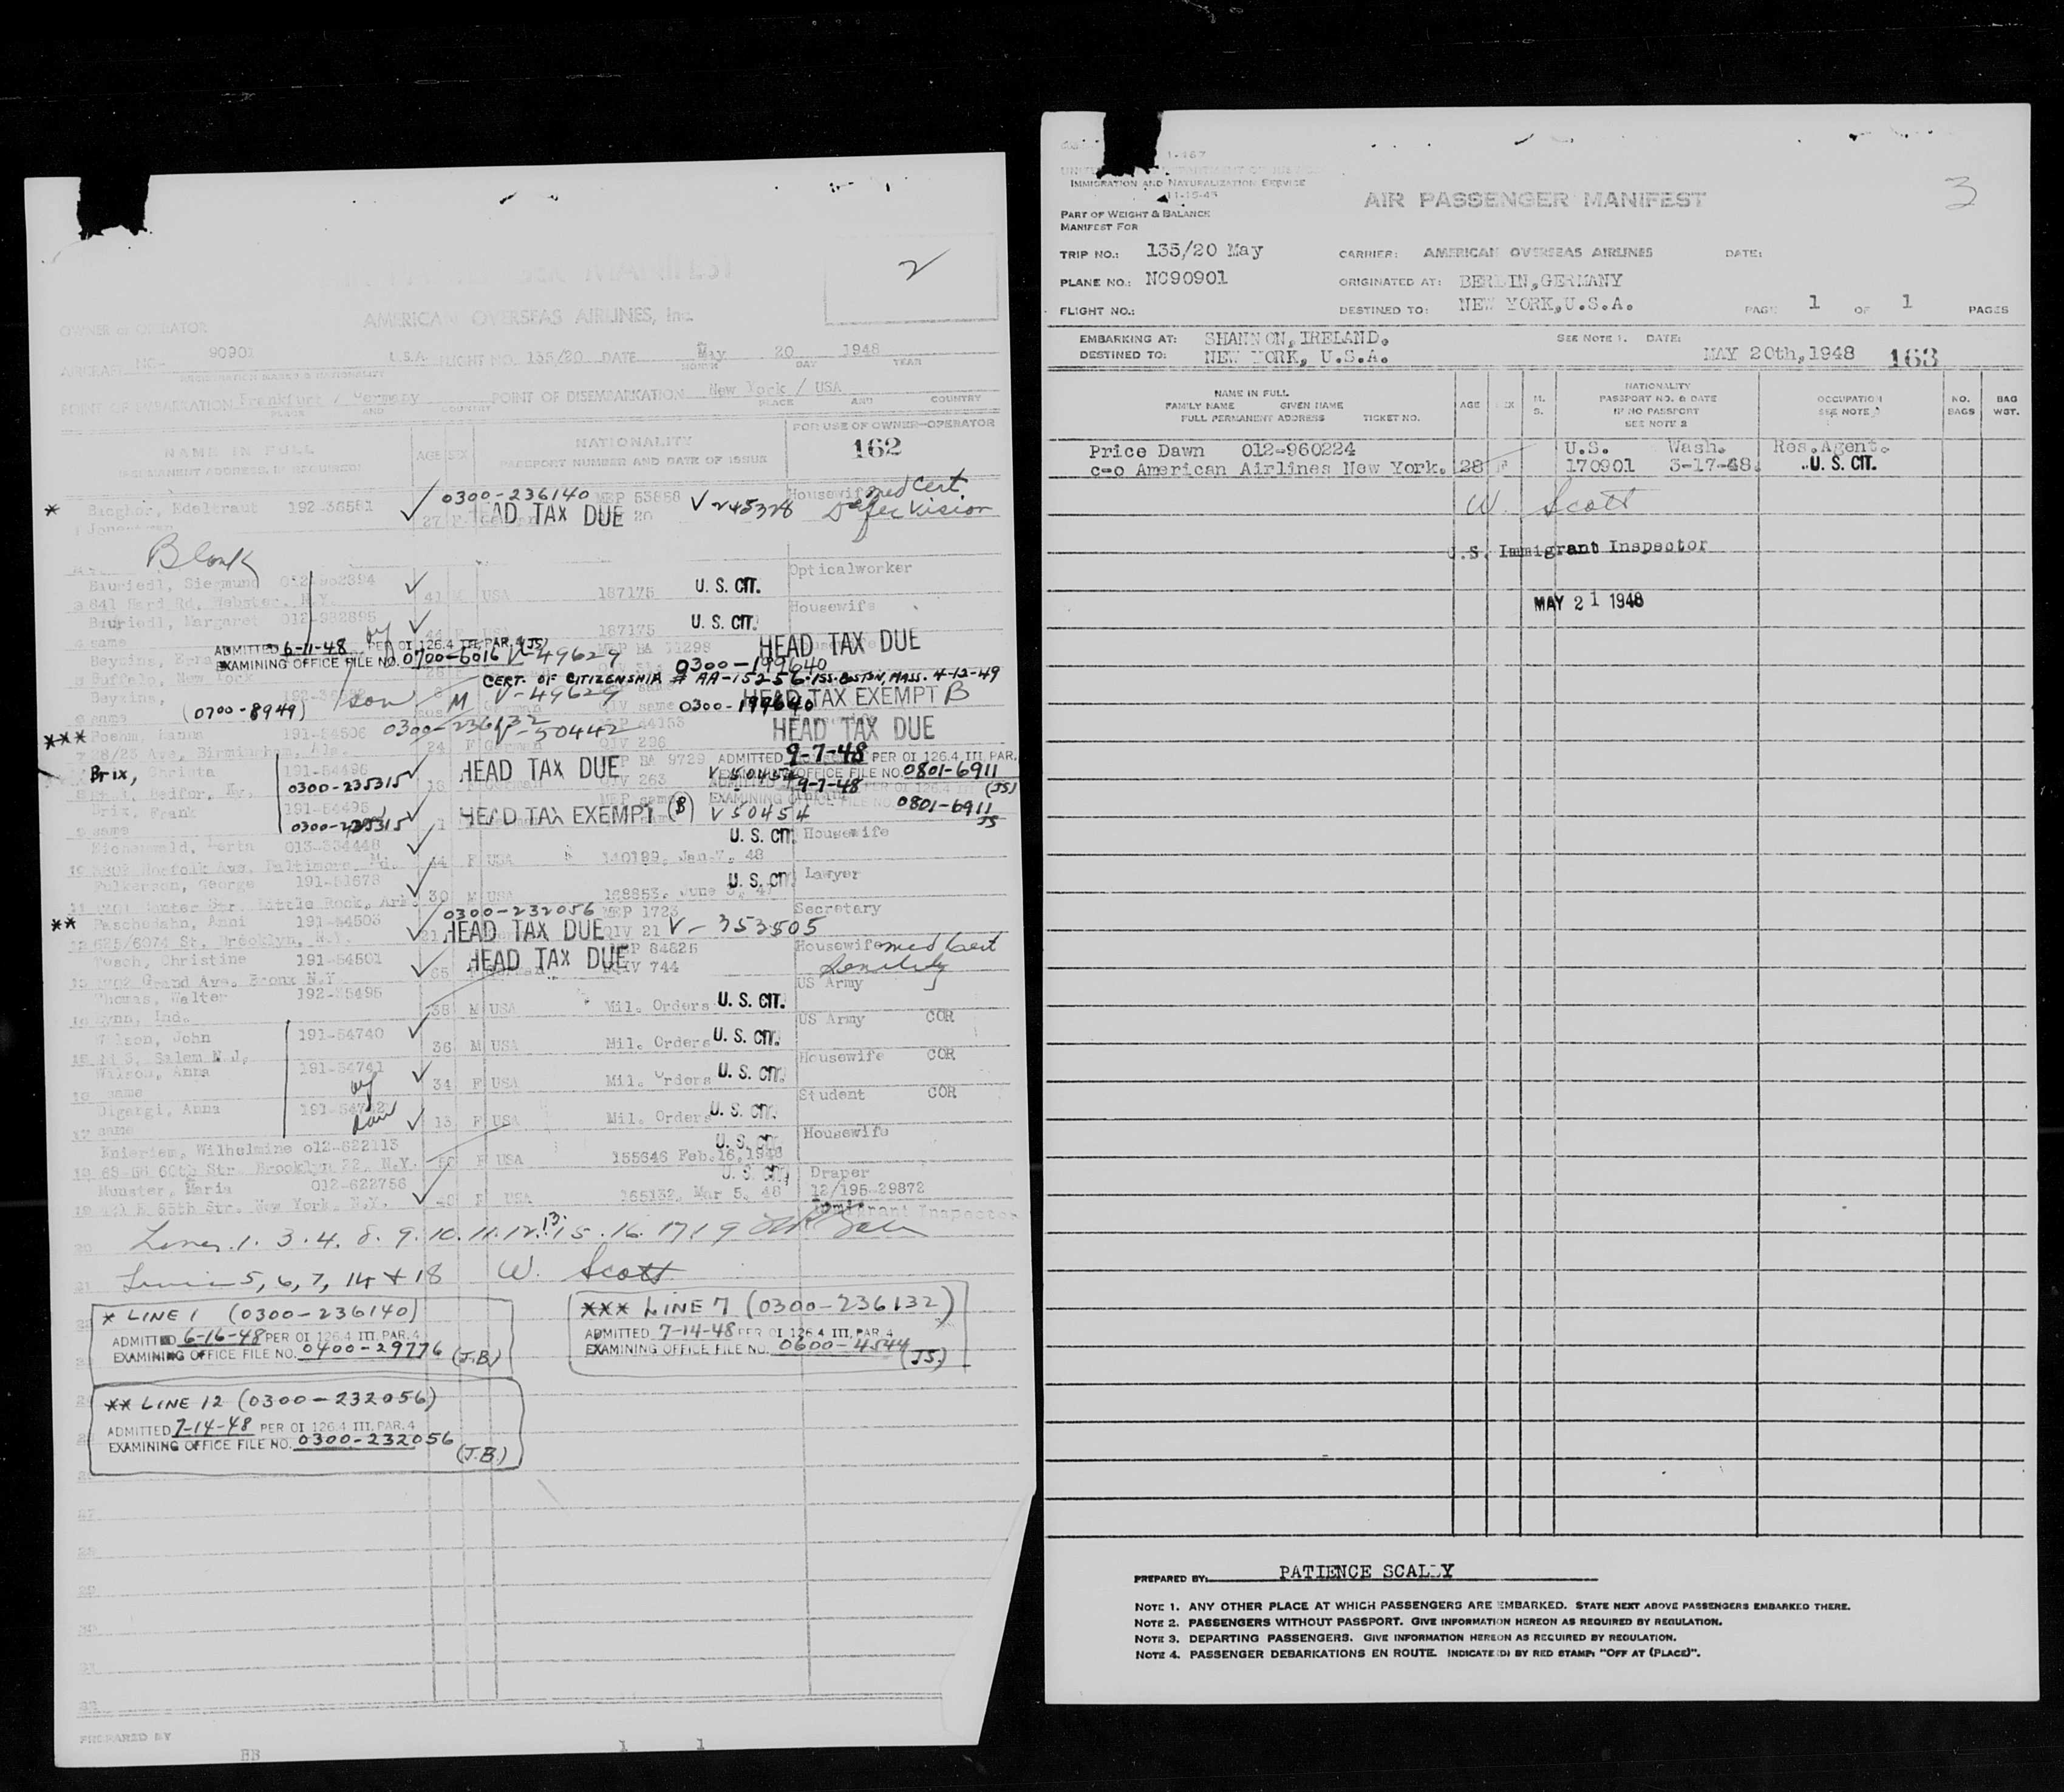 2
OWNER or OPERATOR
AMERICAN OVERSEAS AIRLINES, Inc.
AIRCRAFT NC- 90901 U.S.A. FLIGHT NO. 135/20 DATE May 20 1948
REGISTRATION MARKS & NATIONALITY MONTH DAY YEAR
POINT OF EMBARKATION Frankfurt / Germany POINT OF DISEMBARKATION New York / USA
PLACE AND COUNTRY PLACE AND COUNTRY
FOR USE OF OWNER-OPERATOR
NAME IN FULL AGE SEX NATIONALITY 162
(PERMANENT ADDRESS, IF REQUIRED) PASSPORT NUMBER AND DATE OF ISSUE
0300-236140 MEP 53858 Housewife med cert
* Edeltraut 192-36581 27 HEAD TAX DUE 20 V 245328 Defec vision
1
Blank
Bauriedl, Siegmund 012-982394 Opticalworker
3 841 Hard Rd. Webster, N.Y. 41 M USA 187175 U. S. CIT.
Bauriedl, Margaret 012-982895 Housewife
4 same 44 F USA 187175 U. S. CIT.
ADMITTED 6-11-48 PER OI 126.4 III, PAR. 4 (JS) HEAD TAX DUE
EXAMINING OFFICE FILE NO. 0700-6016 V-49629 0300-199640
5 Buffalo, New York
CERT. OF CITIZENSHIP # AA-15256-ISS. BOSTON, MASS. 4-12-49
son M V-49629 HEAD TAX EXEMPT B
6 same (0700-8949) 0300-199640
0300-236132 V-50442 HEAD TAX DUE
*** Boehm, 191-54506
7 28/23 Ave, Birmingham, Ala. 24 F German QIV 296
MEP BA 9729 ADMITTED 9-7-48 PER OI 126.4 III, PAR.
Brix, Christa 191-54496 HEAD TAX DUE V 50454 EXAMINING OFFICE FILE NO. 0801-6911
8 0300-235315 18 German QIV 263 ADMITTED 9-7-48 PER OI 126.4 III (JS)
Brix, Frank 191-54495 EXAMINING OFFICE FILE NO. 0801-6911
9 same 0300-235315 1 HEAD TAX EXEMPT (B) V 50454 JS
Berta 013-334448 U. S. CIT. Housewife
10 Norfolk Ave. Baltimore, Md. 44 F USA 140199, Jan 7, 48
Fulkerson, George 191-51678 U. S. CIT. Lawyer
11 Str. Little Rock, Ark. 30 M USA 168853, June
0300-232056 MEP 1723 Secretary
** Paschedahn, Anni 191-54503
12 625/6074 St. Brooklyn, N.Y. 21 HEAD TAX DUE QIV 21 V-353505
MEP 84825 Housewife med cert
Christine 191-54501 HEAD TAX DUE
13 1702 Grand Ave. Bronx N.Y. 65 QIV 744 Senility
Thomas, Walter 192-35495 US Army
14 Lynn, Ind. 38 M USA Mil. Orders U. S. CIT.
Wilson, John 191-54740 US Army COR
15 Salem N.J. 36 M USA Mil. Orders U. S. CIT.
Wilson, Anna 191-54741 Housewife COR
16 same 34 F USA Mil. Orders U. S. CIT.
Digargi, Anna Student COR
17 same 13 F USA Mil. Orders U. S. CIT.
Knieriem, Wilhelmine 012-622113 Housewife
18 68-56 60th Str. Brooklyn 22, N.Y. F USA 155646 Feb.16,1948 U. S. CIT.
Munster, Maria 012-622756 Draper
19 121 E 65th Str. New York, N.Y. 40 F USA 165132, Mar 5, 48 U. S. CIT. 12/195-29872
Immigrant Inspector
20 Lines 1. 3. 4. 8. 9. 10. 11. 12. 13. 15. 16. 17 19
21 5, 6, 7, 14 + 18 W. Scott
* LINE 1 (0300-236140)
ADMITTED 6-16-48 PER OI 126.4 III, PAR. 4
EXAMINING OFFICE FILE NO. 0400-29776 (J.B.)
*** LINE 7 (0300-236132)
ADMITTED 7-14-48 PER OI 126.4 III, PAR. 4
EXAMINING OFFICE FILE NO. 0600-4544 (JS)
** LINE 12 (0300-232056)
ADMITTED 7-14-48 PER OI 126.4 III, PAR. 4
EXAMINING OFFICE FILE NO. 0300-232056 (J.B.)
27
28
29
30
31
32
PREPARED BY
BB 1 1
3
IMMIGRATION AND NATURALIZATION SERVICE
AIR PASSENGER MANIFEST
PART OF WEIGHT & BALANCE
MANIFEST FOR
TRIP NO.: 135/20 May CARRIER: AMERICAN OVERSEAS AIRLINES DATE:
PLANE NO.: NC90901 ORIGINATED AT: BERLIN,GERMANY
FLIGHT NO.: DESTINED TO: NEW YORK,U.S.A. PAGE 1 OF 1 PAGES
EMBARKING AT: SHANNON,IRELAND. SEE NOTE 1. DATE:
DESTINED TO: NEW YORK, U.S.A. MAY 20th,1948 163
NAME IN FULL NATIONALITY
FAMILY NAME GIVEN NAME AGE SEX M. S. PASSPORT NO. & DATE OCCUPATION NO. BAGS BAG WGT.
FULL PERMANENT ADDRESS TICKET NO. IF NO PASSPORT SEE NOTE 3
SEE NOTE 2
Price Dawn 012-960224 U.S. Wash. Res.Agent.
c-o American Airlines New York. 28 F 170901 3-17-48. U. S. CIT.
W. Scott
U.S. Immigrant Inspector
MAY 21 1948
PREPARED BY: PATIENCE SCALLY
NOTE 1. ANY OTHER PLACE AT WHICH PASSENGERS ARE EMBARKED. STATE NEXT ABOVE PASSENGERS EMBARKED THERE.
NOTE 2. PASSENGERS WITHOUT PASSPORT. GIVE INFORMATION HEREON AS REQUIRED BY REGULATION.
NOTE 3. DEPARTING PASSENGERS. GIVE INFORMATION HEREON AS REQUIRED BY REGULATION.
NOTE 4. PASSENGER DEBARKATIONS EN ROUTE. INDICATE(D) BY RED STAMP: "OFF AT (PLACE)".